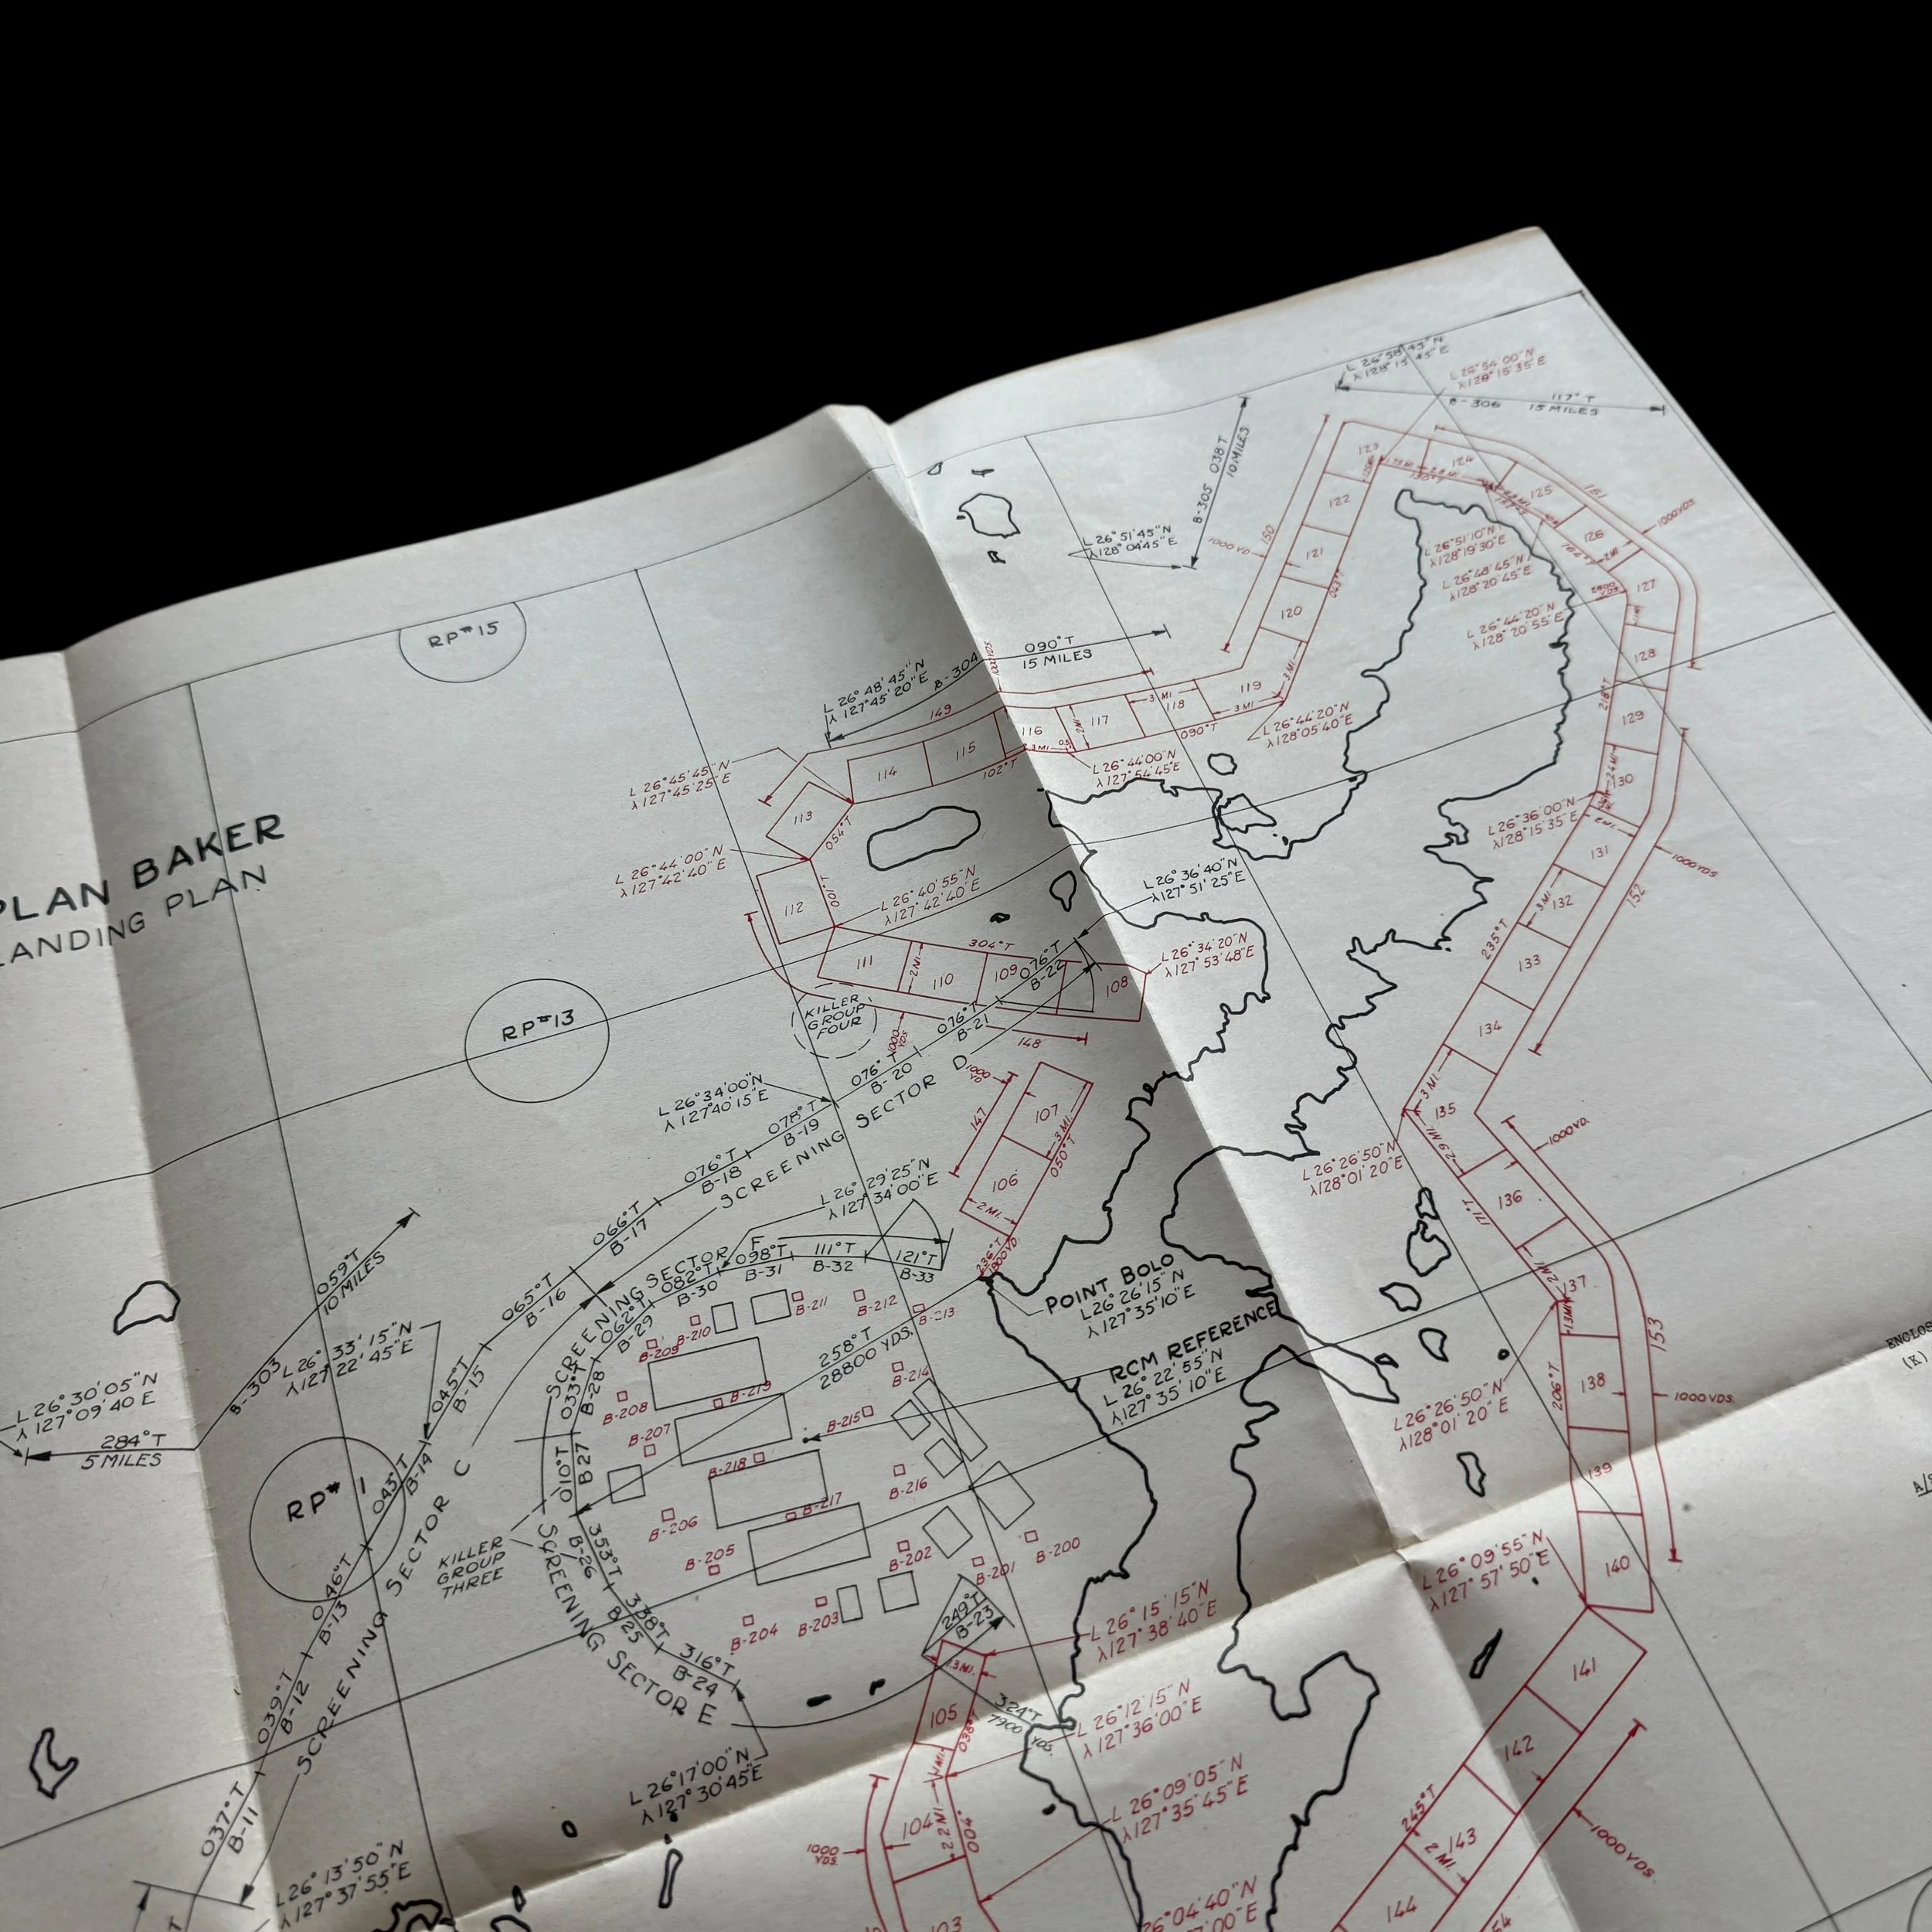 PLAN BAKER
LANDING PLAN
RP#15
RP#13
RP# 1
L 26°58'45"N
λ 128°15'45"E
L 26°54'00"N
λ 128°15'35"E
B-306
117°T
15 MILES
B-305
038°T
10 MILES
L 26°51'45"N
λ 128°04'45"E
1000 YD
150
123
124
125
151
1000 YDS.
126
127
122
121
120
043°T
L 26°51'10"N
λ 128°19'30"E
L 26°48'45"N
λ 128°20'45"E
L 26°44'20"N
λ 128°20'55"E
128
129
130
090°T
15 MILES
L 26°48'45"N
λ 127°45'20"E
B-304
149
119
3 MI.
3 MI.
118
3 MI.
117
2 MI.
116
3 MI.
115
114
102°T
090°T
L 26°44'20"N
λ 128°05'40"E
L 26°44'00"N
λ 127°54'45"E
L 26°45'45"N
λ 127°45'25"E
113
054°T
L 26°44'00"N
λ 127°42'40"E
112
010°T
L 26°40'55"N
λ 127°42'40"E
L 26°36'40"N
λ 127°51'25"E
L 26°36'00"N
λ 128°15'35"E
2 MI.
131
1000 YDS.
132
3 MI.
152
235°T
133
134
111
2 MI.
110
304°T
109
076°T
B-22
108
L 26°34'20"N
λ 127°53'48"E
KILLER
GROUP
FOUR
1000
YDS
148
076°T
B-21
076°
B-20
SCREENING SECTOR D
L 26°34'00"N
λ 127°40'15"E
078°T
B-19
076°T
B-18
066°T
B-17
065°T
B-16
045°T
B-15
1000
YD
147
107
3 MI.
050°T
106
2 MI.
236°T
1800 YD.
3 MI.
135
2.9 MI.
1000 YD.
L 26°26'50"N
λ 128°01'20"E
136
171°T
2 MI.
137
L 26°29'25"N
λ 127°34'00"E
SCREENING SECTOR F
062°T
B-29
082°T
B-30
098°T
B-31
111°T
B-32
121°T
B-33
033°T
B-28
010°T
B27
059°T
10 MILES
B-303
L 26°33'15"N
λ 127°22'45"E
L 26°30'05"N
λ 127°09'40 E
284°T
5 MILES
043°T
B-14
046°T
B-13
039°T
B-12
037°T
B-11
SCREENING SECTOR C
KILLER
GROUP
THREE
POINT BOLO
L 26°26'15"N
λ 127°35'10"E
RCM REFERENCE
L 26°22'55"N
λ 127°35'10"E
258°T
28800 YDS.
B-209
B-210
B-211
B-212
B-213
B-214
B-208
B-207
B-219
B-215
B-218
B-216
B-206
B-217
B-205
B-202
B-201
B-200
B-204
B-203
353°T
B-26
338°T
B25
316°T
B-24
SCREENING SECTOR E
249°T
B-23
L 26°17'00"N
λ 127°30'45"E
L 26°13'50"N
λ 127°37'55"E
L 26°15'15"N
λ 127°38'40"E
105
038°T
324°T
7900
YDS.
L 26°12'15"N
λ 127°36'00"E
L 26°09'05"N
λ 127°35'45"E
104
2.2 MI
004°
1000
YDS.
103
26°04'40"N
L 26°26'50"N
λ 128°01'20"E
206°T
138
153
1000 YDS.
139
L 26°09'55"N
λ 127°57'50"E
140
141
142
245°T
143
2 MI.
1000 YDS.
144
ENCLOS
(K)